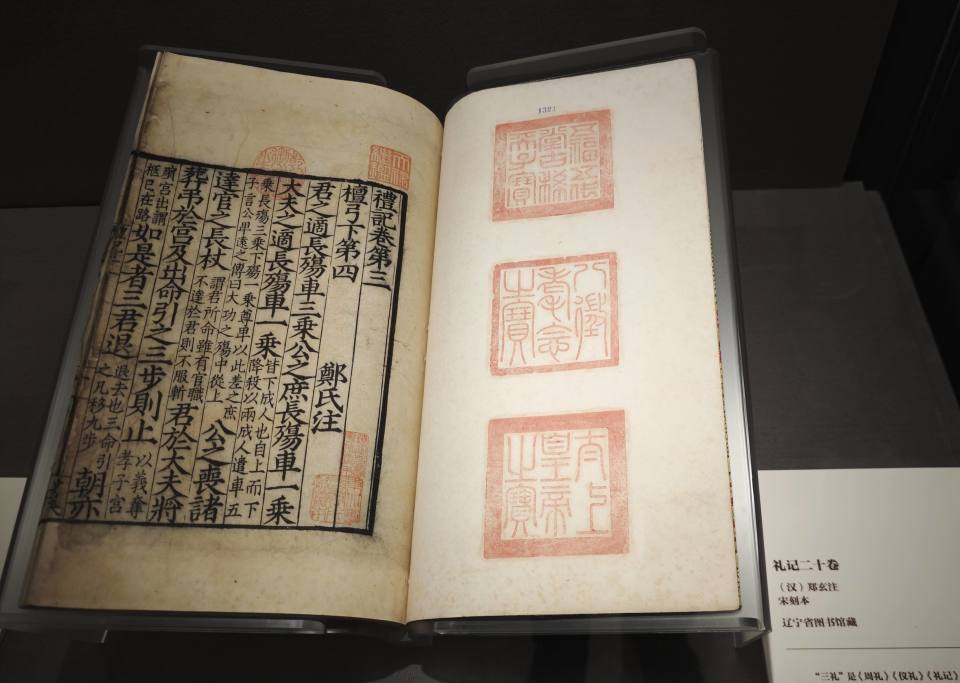 五福五代堂古稀天子寶
八徵耄念之寶
太上皇帝之寶
禮記卷第三
檀弓下第四 鄭氏注
君之適長殤車三乘公之庶長殤車一乘
大夫之適長殤車一乘 皆下成人也自上而下降殺以兩成人遣車五
乘長殤三乘下殤一乘尊卑以此差之庶子言公卑遠之傳曰大功之殤中從上 公之喪諸
達官之長杖 謂君所命雖有官職不達於君則不服斬 君於大夫將
葬弔於宮及出命引之三步則止 以義奪孝子宮
殯宮出謂柩已在路 如是者三君退 退去也三命引之凡移九步 朝亦
礼记二十卷
（汉）郑玄注
宋刻本
辽宁省图书馆藏
“三礼”是《周礼》《仪礼》《礼记》